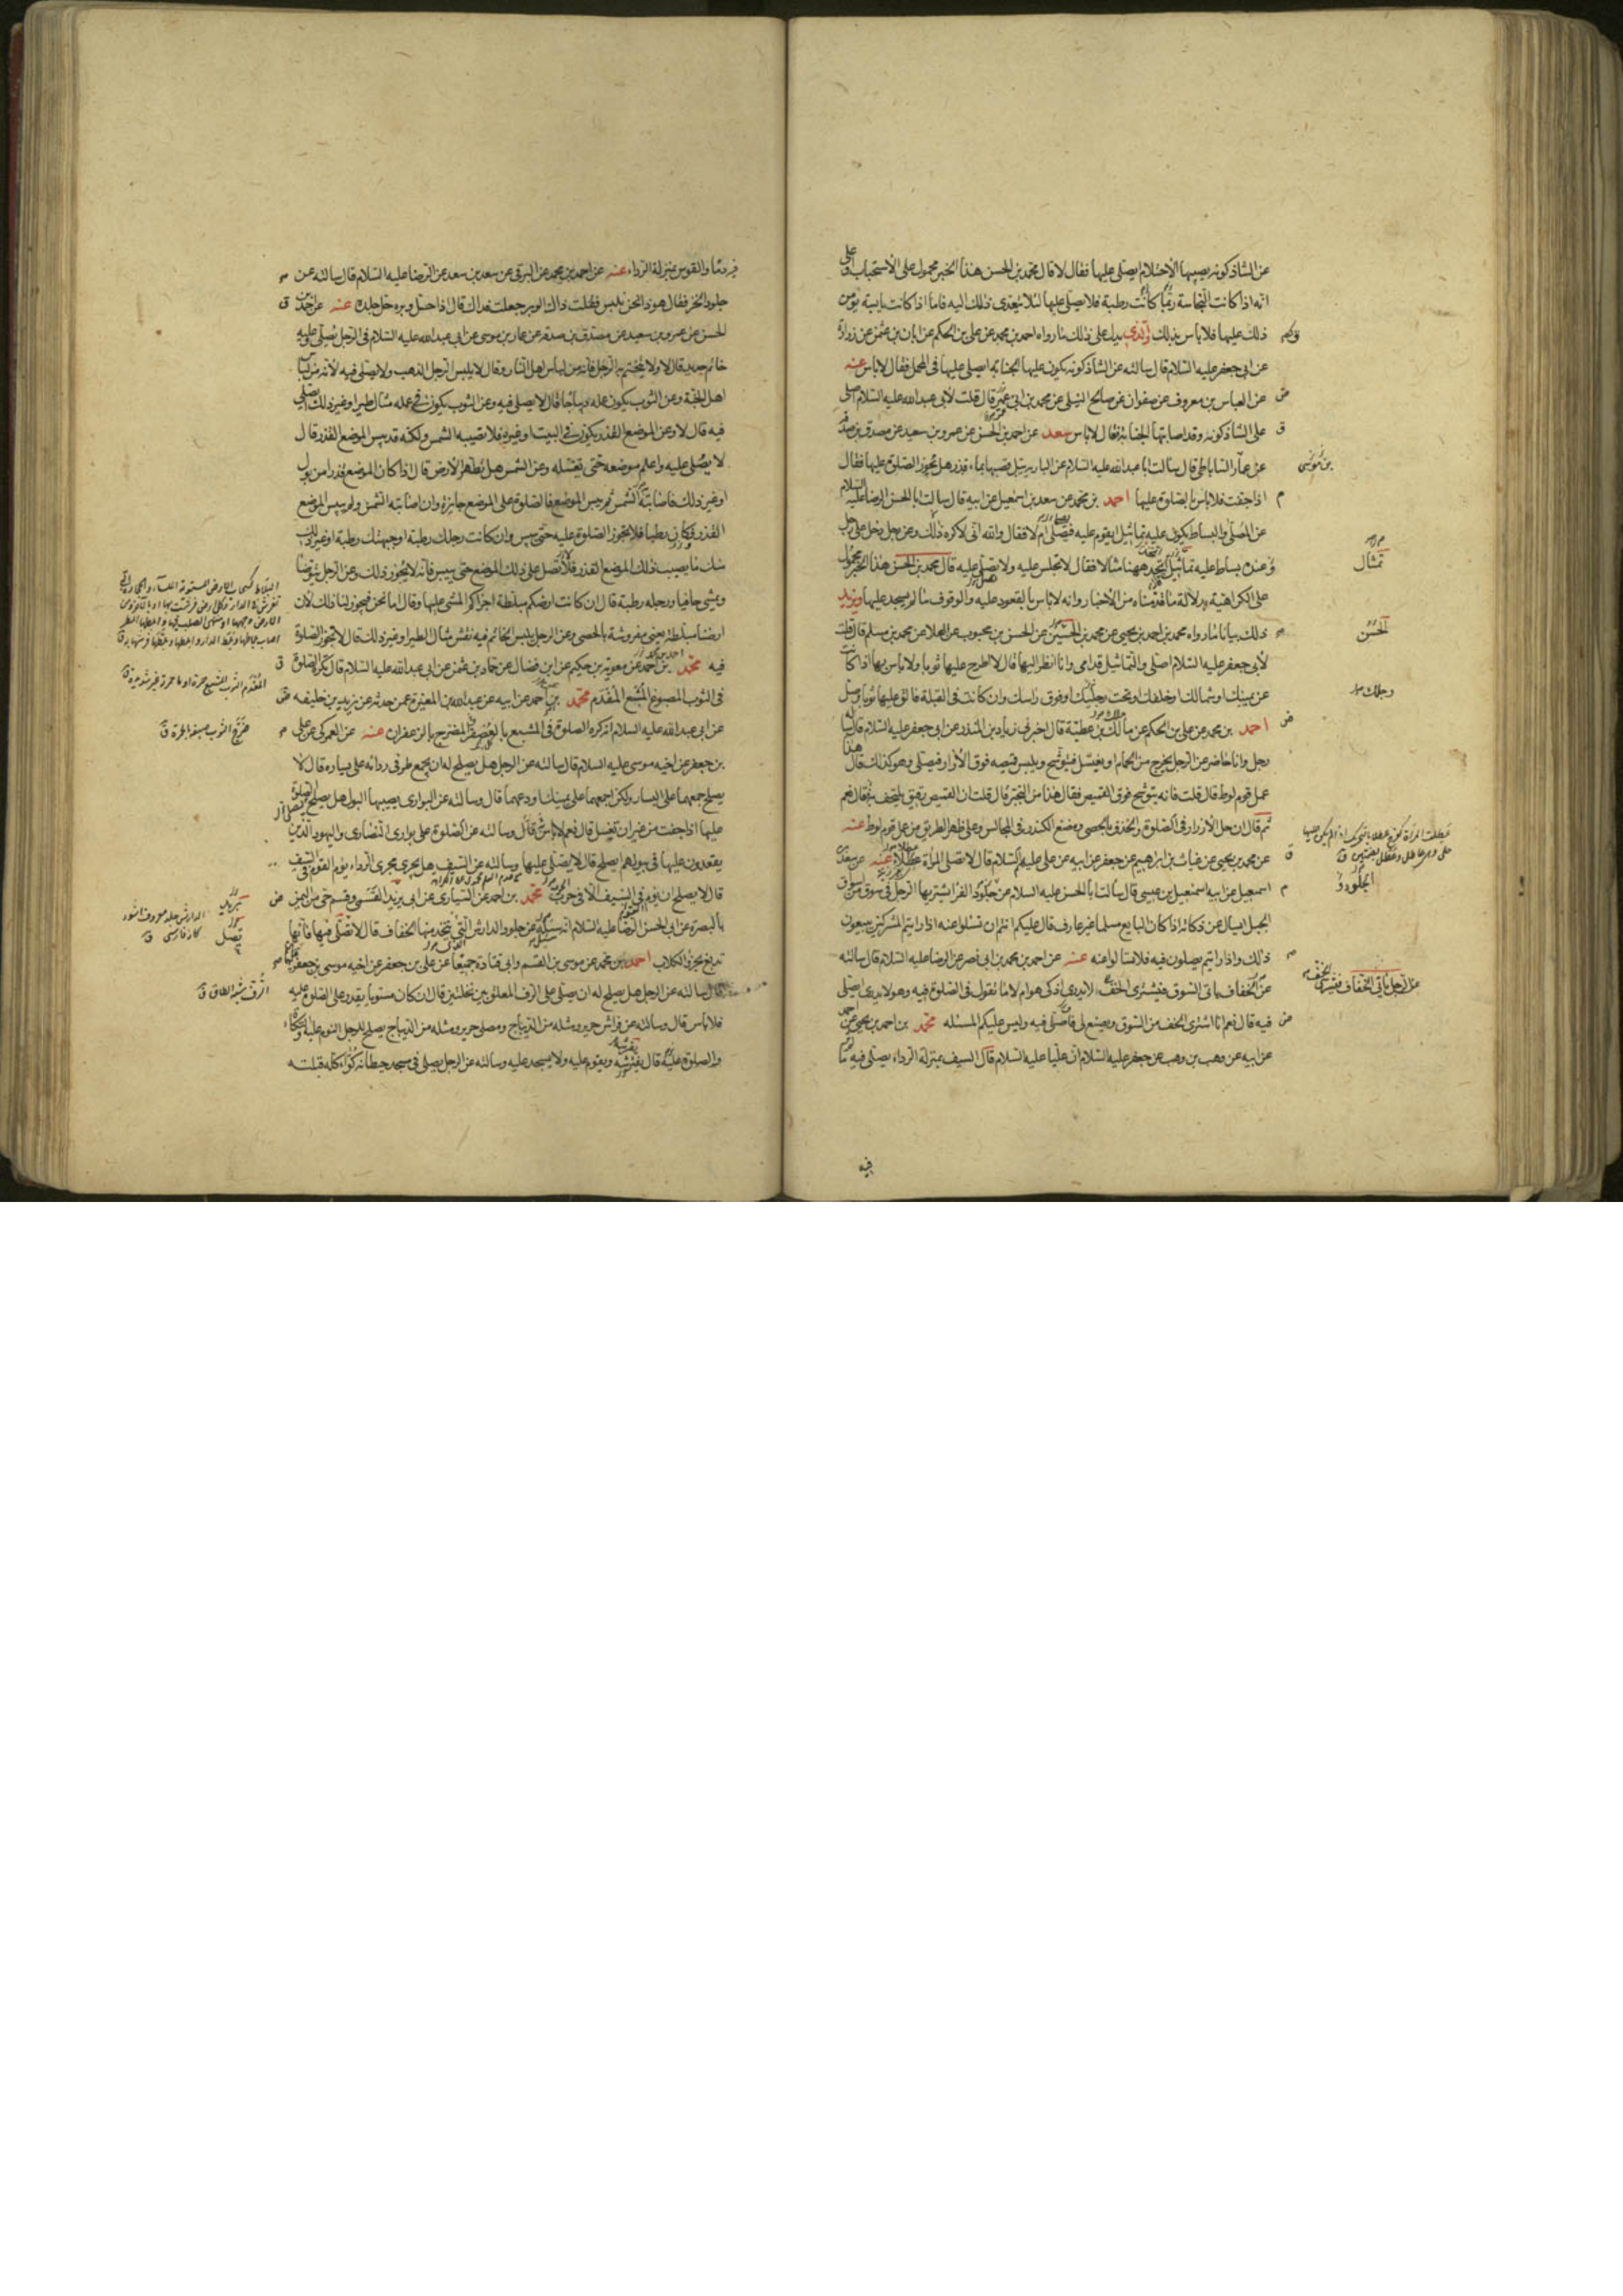 عن الشاذكونه يصيبها الاحتلام يصلى عليها فقال لا قال محمد بن الحسن هذا الخبر محمول على الاستحباب وعلى
انه اذا كانت النجاسة ربما كانت رطبة فلا يصلى عليها لئلا يتعدى ذلك اليه فاما اذا كانت يابسة يؤمن
ذلك عليها فلا باس بذلك والذى يدل على ذلك ما رواه احمد بن محمد عن على بن الحكم عن ابان بن عثمن عن زرارة
عن ابى جعفر عليه السلام قال سالته عن الشاذكونه يكون عليها الجنابه ايصلى عليها فى المحمل فقال لا باس عنه
عن العباس بن معروف عن صفوان عن صالح النيلى عن محمد بن ابى عمير قال قلت لابى عبد الله عليه السلام اصلى
على الشاذكونه وقد اصابتها الجنابة فقال لا باس سعد عن احمد بن الحسن عن عمرو بن سعيد عن مصدق بن صدقه
عن عمار الساباطى قال سالت ابا عبد الله عليه السلام عن البارية يبل قصبها بماء قذر هل تجوز الصلوة عليها فقال
بن موسى
اذا جفت فلا باس بالصلوة عليها احمد بن محمد عن سعد بن اسمعيل عن ابيه قال سالت ابا الحسن الرضا عليه السلام
عن المصلى والبساط يكون عليه تماثيل ايقوم عليه فيصلى ام لا فقال والله انى لاكره ذلك وعن رجل دخل على رجل
وعنده بساط عليه تمثال فقال اتجد ههنا مثالا فقال لا تجلس عليه ولا تصلى عليه قال محمد بن الحسن هذا الخبر محمول
تمثال
على الكراهية بدلالة ما قدمناه من الاخبار وانه لا باس بالقعود عليه والوقوف ما لم يسجد عليها ويزيد
ذلك بيانا ما رواه محمد بن احمد بن يحيى عن محمد بن الحسين عن الحسن بن محبوب عن العلا عن محمد بن مسلم قال قلت
الحسن
لابى جعفر عليه السلام اصلى والتماثيل قدامى وانا انظر اليها قال لا اطرح عليها ثوبا ولا باس بها اذا كانت
عن يمينك او شمالك او خلفك او تحت رجليك او فوق راسك وان كانت فى القبلة فالق عليها ثوبا وصل
رجلك
احمد بن محمد عن على بن الحكم عن مالك بن عطية قال اخبرنى زياد بن المنذر عن ابى جعفر عليه السلام قال ساله
رجل وانا حاضر عن الرجل يخرج من الحمام او يغتسل فيتوشح ويلبس قميصه فوق الازار فيصلى وهو كذلك قال هذا
عمل قوم لوط قال قلت فانه يتوشح فوق القميص فقال هذا من التجبر قال قلت ان القميص رقيق يلتحف به قال نعم
ثم قال ان حل الازرار فى الصلوة والخذف بالحصى ومضغ الكندر فى المجالس وعلى ظهر الطريق من عمل قوم لوط عنه
عن محمد بن يحيى عن غياث بن ابراهيم عن جعفر عن ابيه عن على عليهم السلام قال لا تصلى المراة عطلا عنه عن سعد بن
اسمعيل عن ابيه اسمعيل بن عيسى قال سالت ابا الحسن عليه السلام عن جلود الفرا يشتريها الرجل فى سوق من اسواق
الجلود
الجبل ايسال عن ذكاته اذا كان البايع مسلما غير عارف قال عليكم انتم ان تسئلوا عنه اذا رايتم المشركين يبيعون
ذلك واذا رايتم يصلون فيه فلا تسالوا عنه عنه عن احمد بن محمد بن ابى نصر عن الرضا عليه السلام قال سالته
عن الخفاف ياتى السوق فيشترى الخف لا يدرى اذكى هو ام لا ما تقول فى الصلوة فيه وهو لا يدرى ايصلى
عن الرجل ياتى الخفاف فيشترى الخف
فيه قال نعم انا اشترى الخف من السوق ويصنع لى فاصلى فيه وليس عليكم المسئلة محمد بن احمد بن يحيى عن
عن ابيه عن وهب بن وهب عن جعفر عليه السلام ان عليا عليه السلام قال السيف بمنزلة الرداء يصلى فيه ما
فيه
فيه دما والقوس بمنزلة الرداء عنه عن احمد بن محمد عن البرقى عن سعد بن سعد عن الرضا عليه السلام قال سالته عن
جلود الخز فقال هوذا نحن نلبس فقلت ذاك الوبر جعلت فداك قال اذا حل وبره حل جلده عنه عن احمد بن
الحسن عن عمرو بن سعيد عن مصدق بن صدقه عن عمار بن موسى عن ابى عبد الله عليه السلام فى الرجل يصلى وعليه
خاتم حديد قال لا ولا يتختم به الرجل فانه من لباس اهل النار وقال لا يلبس الرجل الذهب ولا يصلى فيه لانه من لباس
اهل الجنة وعن الثوب يكون علمه ديباجا قال لا يصلى فيه وعن الثوب يكون فى علمه مثال طير او غير ذلك ايصلى
فيه قال لا وعن الموضع القذر يكون فى البيت او غيره فلا تصيبه الشمس ولكنه قد يبس الموضع القذر قال
لا يصلى عليه واعلم موضعه حتى تغسله وعن الشمس هل تطهر الارض قال اذا كان الموضع قذرا من بول
او غير ذلك فاصابته الشمس ثم يبس الموضع فالصلوة على الموضع جايزة وان اصابته الشمس ولم ييبس الموضع
القذر وكان رطبا فلا تجوز الصلوة عليه حتى ييبس وان كانت رجلك رطبة او جبهتك رطبة او غير ذلك
منك ما يصيب ذلك الموضع القذر فلا تصل على ذلك الموضع حتى ييبس فانه لا يجوز ذلك وعن الرجل يتوضا
ويمشى حافيا ورجله رطبة قال ان كانت ارضكم مبلطة اجزاكم المشى عليها وقال اما نحن فيجوز لنا ذلك لان
ارضنا مبلطة يعنى مفروشة بالحصى وعن الرجل يلبس الخاتم فيه نقش مثال الطير او غير ذلك قال لا تجوز الصلوة
فيه محمد بن احمد عن معوية بن حكيم عن ابن فضال عن حماد بن عثمن عن ابى عبد الله عليه السلام قال تكره الصلوة
فى الثوب المصبوغ المشبع المفدم محمد بن احمد عن ابيه عن عبد الله بن المغيرة عمن حدثه عن يزيد بن خليفه
عن ابى عبد الله عليه السلام انه كره الصلوة فى المشبع بالعصفر المضرج بالزعفران عنه عن العمركى عن على
بن جعفر عن اخيه موسى عليه السلام قال سالته عن الرجل هل يصلح له ان يجمع طرفى ردائه على يساره قال لا
يصلح جمعهما على اليسار ولكن اجمعهما على يمينك او دعهما قال وسالته عن البوارى يصيبها البول هل يصلح الصلوة
عليها اذا جفت من غير ان تغسل قال نعم لا باس قال وسالته عن الصلوة على بوارى النصارى واليهود الذين
يقعدون عليها فى بيوتهم ايصلح قال لا يصلى عليها وسالته عن السيف هل يجرى مجرى الرداء يؤم القوم فى السيف
قال لا يصلح ان يؤم فى السيف الا فى حرب محمد بن احمد عن السيارى عن ابى يزيد القسمى وقسم حى من اليمن
بالبصرة عن ابى الحسن الرضا عليه السلام انه ساله عن جلود الدارش التى يتخذ منها الخفاف قال لا تصلى فيها فانها
تصل
تدبغ بخرؤ الكلاب احمد بن محمد عن موسى بن القسم وابى قتادة جميعا عن على بن جعفر عن اخيه موسى بن جعفر
قال سالته عن الرجل هل يصلح له ان يصلى على الرف المعلق بين نخلتين قال ان كان مستويا يقدر على الصلوة عليه
فلا باس قال وسالته عن فراش حرير ومثله من الديباج ومصلى حرير ومثله من الديباج يصلح للرجل النوم عليه والتكاء
والصلوة عليه قال يفترشه ويقوم عليه ولا يسجد عليه وسالته عن الرجل يصلى فى مسجد حيطانه كواء كله قبلته